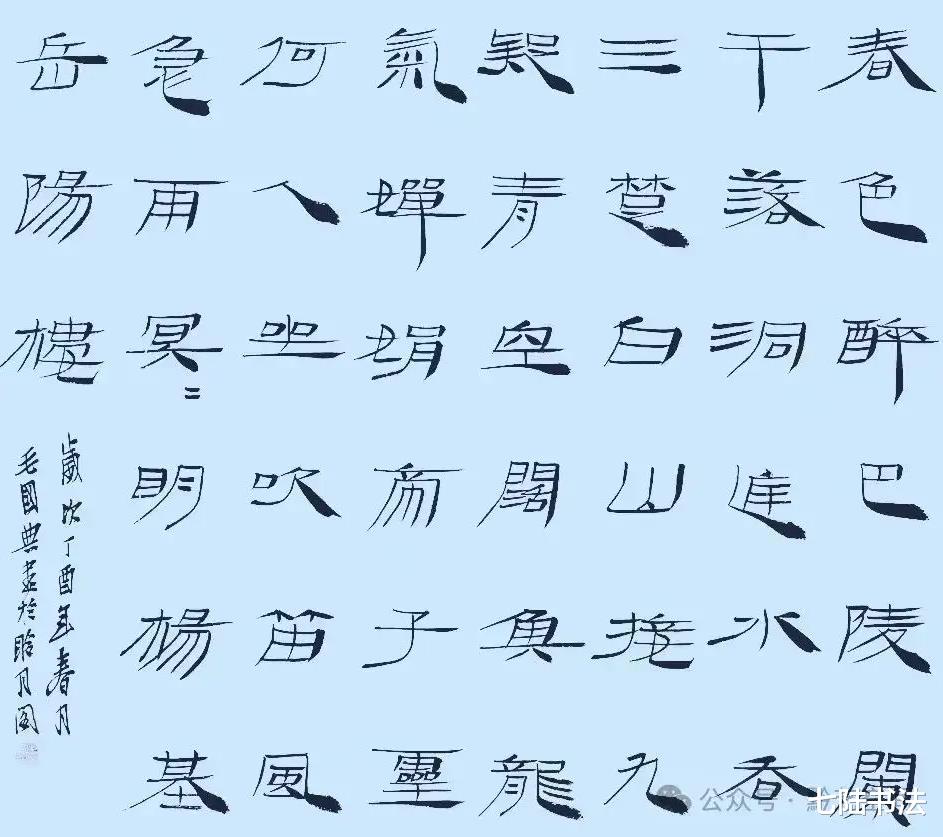 春色醉巴陵闌
干落洞庭水吞
三楚白山接九
疑青空闊魚龍
氣嬋娟帝子靈
何人坐吹笛風
急雨冥〻明楊基
岳陽樓
歲次丁酉年春月
毛國典書於聆月閣
公众号 ·
七陆书法